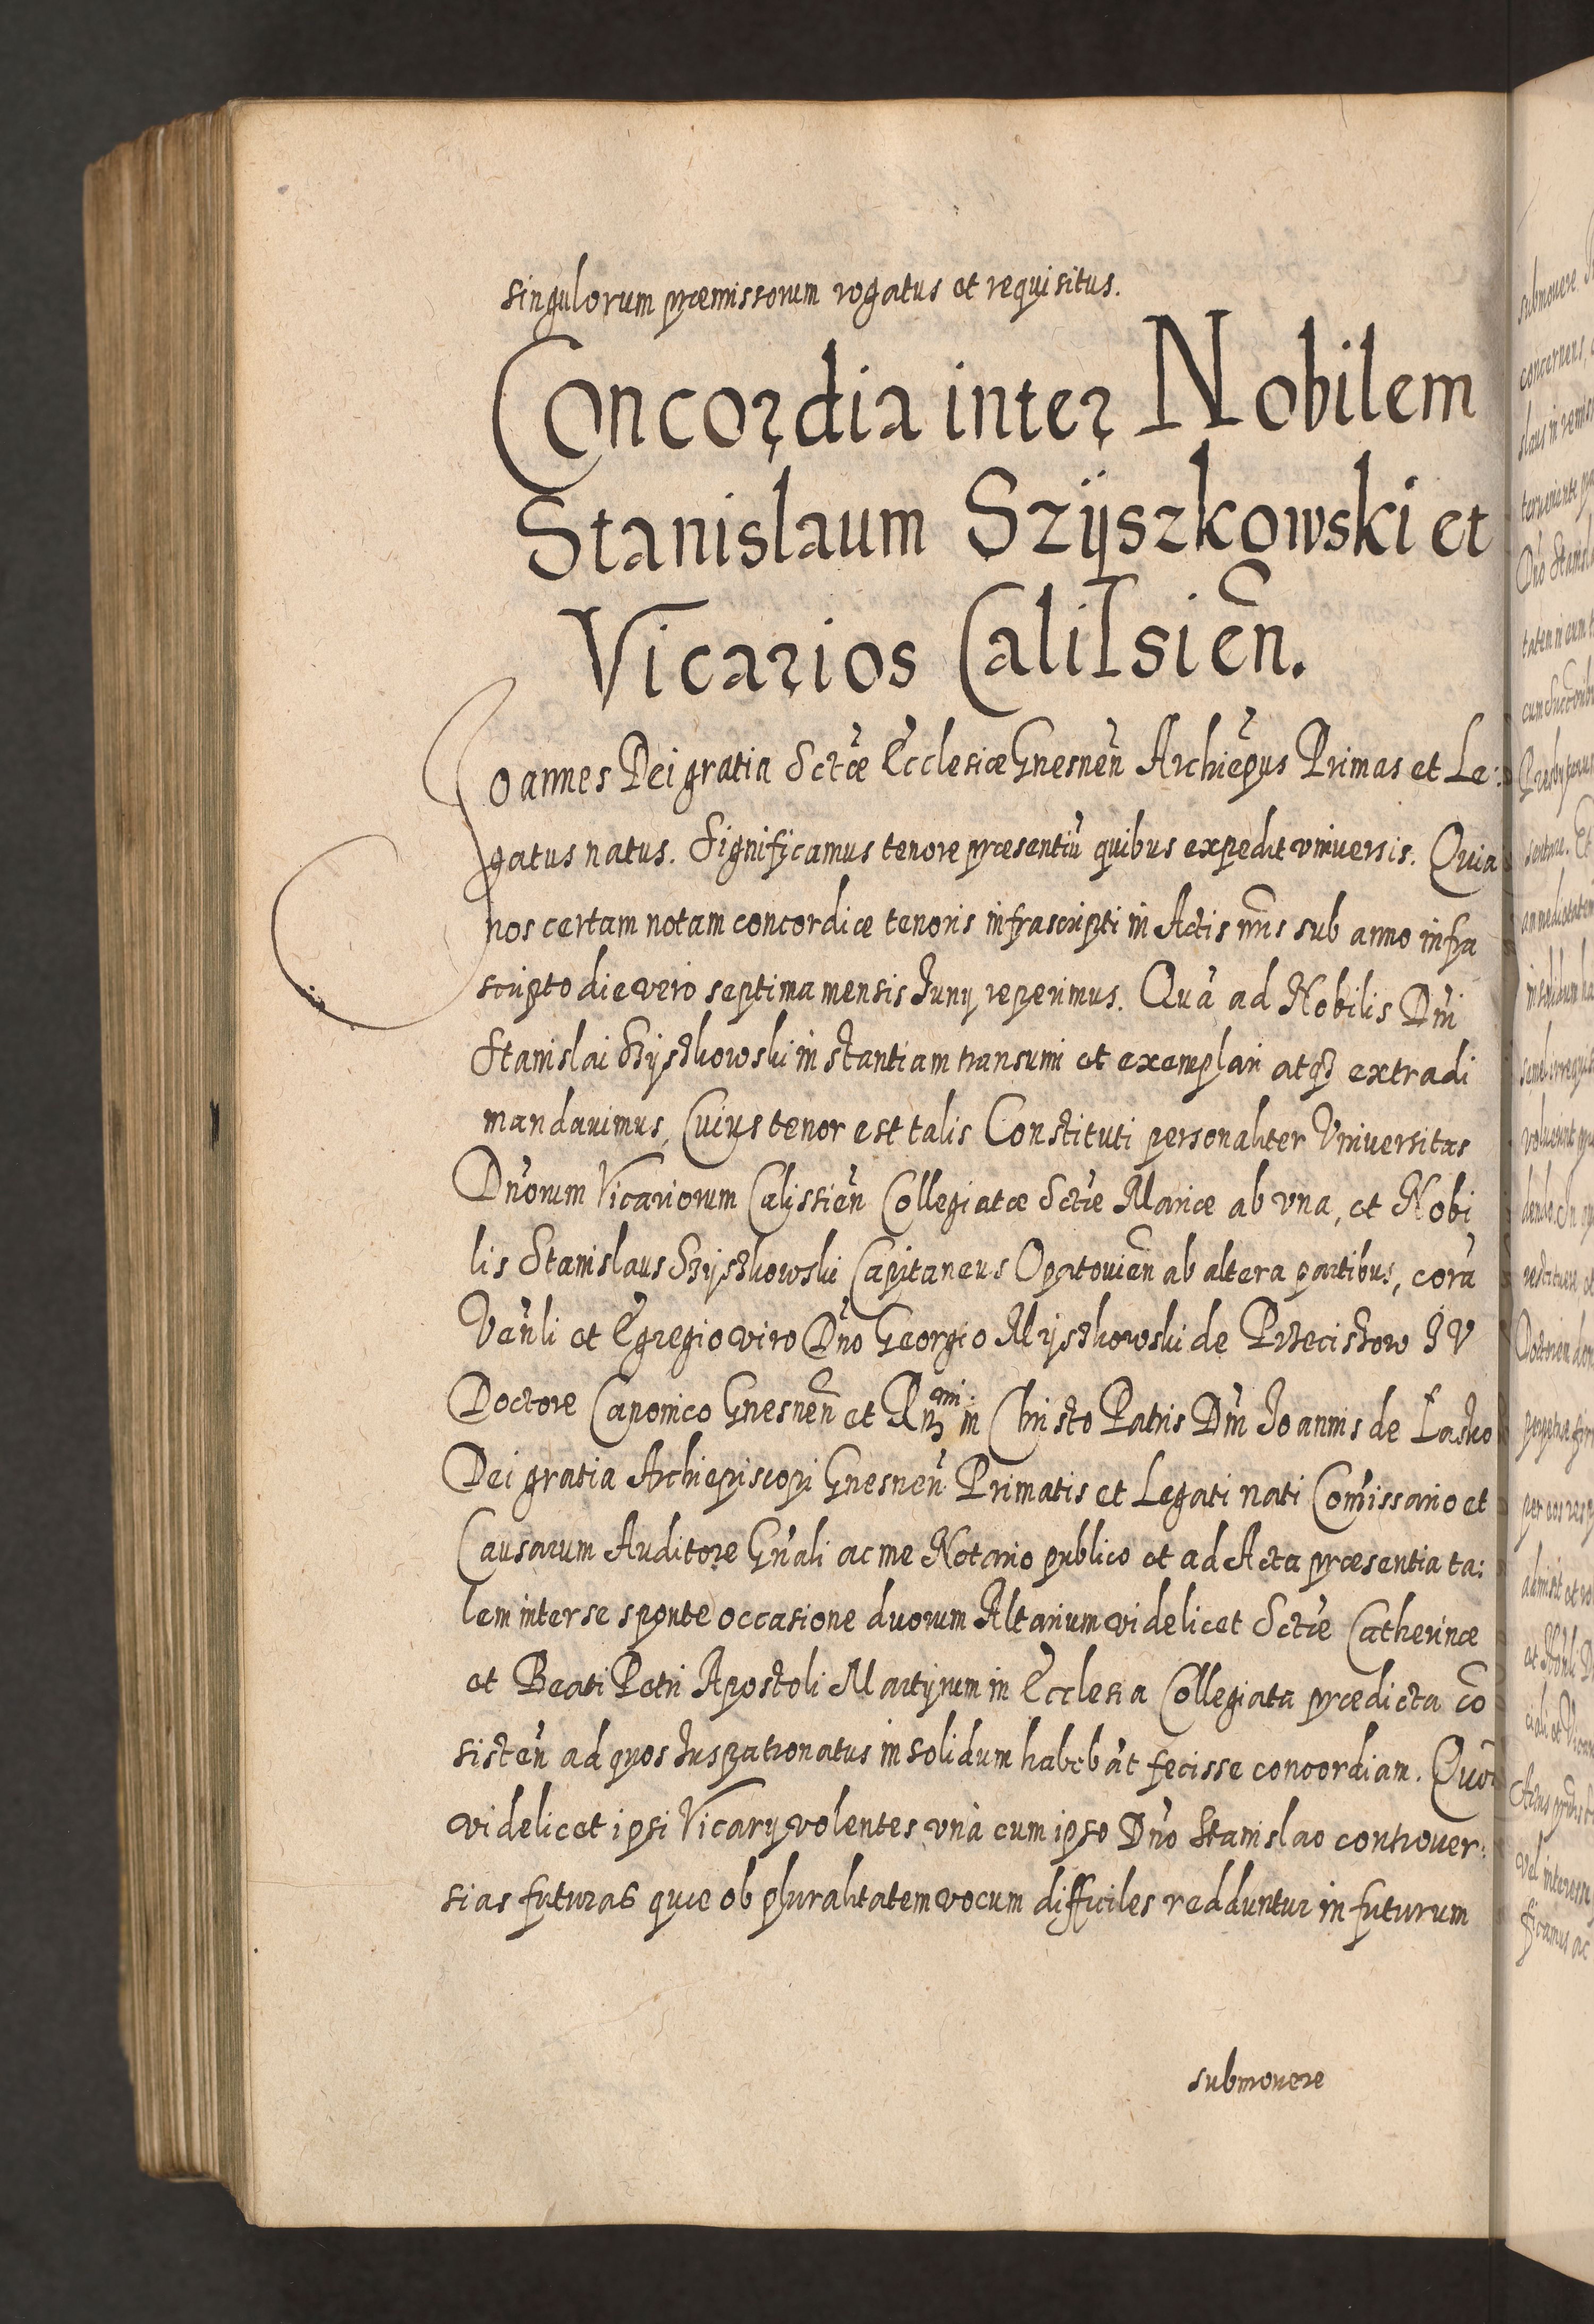 singulorum præmissorum rogatus et requisitus.
Concordia inter Nobilem
Stanislaum Szÿszkowski et
Vicarios Calissien̄.
Joannes Dei gratia Sctæ Ecclesiæ Gnesnen̄ Archiep̄us Primas et Le:
gatus natus. Significamus tenore præsentiū quibus expedit vniuersis. Quia
nos certam notam concordiæ tenoris infrascripti in Actis nr̄is sub anno infra
scripto die vero septima mensis Junij reperimus. Quā ad Nobilis Dn̄i
Stanislai Szÿszkowski instantiam transumi et exemplari atqz extradi
mandauimus, Cuius tenor est talis Constituti personaliter Vniuersitas
Dn̄orum Vicariorum Calissien̄ Collegiatæ Sctæ Mariæ ab vna, et Nobi
lis Stanislaus Szÿszkowski Capitaneus Opatouien̄ ab altera partibus, corā
Ven̄li et Egregio viro Dn̄o Georgio Mÿszkowski de Przeciszow J V
Doctore Canonico Gnesnen̄ et Rn̄ɜ mi in Christo Patris Dn̄i Joannis de Łasko
Dei gratia Archiepiscopi Gnesnen̄ Primatis et Legati nati Com̄issario et
Causarum Auditore Gn̄ali ac me Notario publico et ad Acta præsentia ta:
lem inter se sponte occasione duorum Altarium videlicet Sctæ Catherinæ
et Beati Petri Apostoli Martyrum in Ecclesia Collegiata prædicta cō
sisten̄ ad quos Juspatronatus in solidum habebāt fecisse concordiam. Quōd
videlicet ipsi Vicarij volentes vnà cum ipso Dn̄o Stanislao controuer:
sias futuras quæ ob pluralitatem vocum difficiles redduntur in futurum
submouere